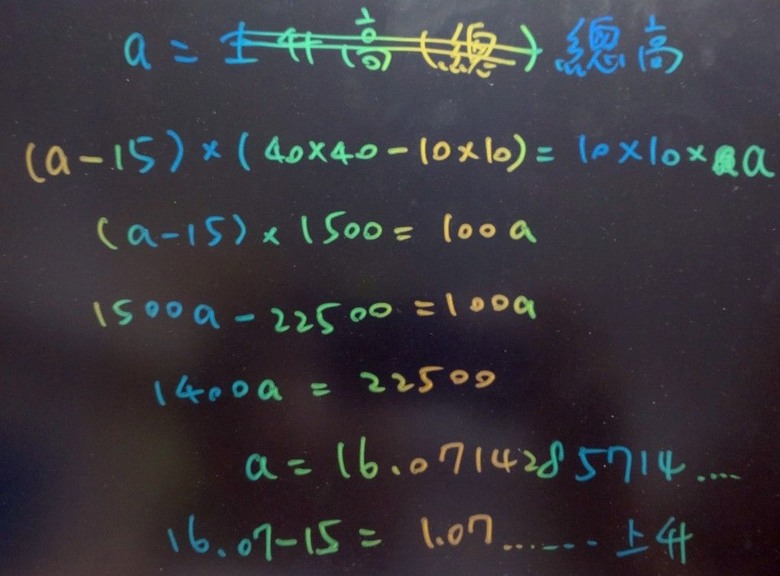 a = 上升高(總)總高
(a-15)×(40×40-10×10)=10×10×a
(a-15)×1500=100a
1500a-22500=100a
1400a=22500
a=16.0714285714....
16.07-15=1.07.......上升